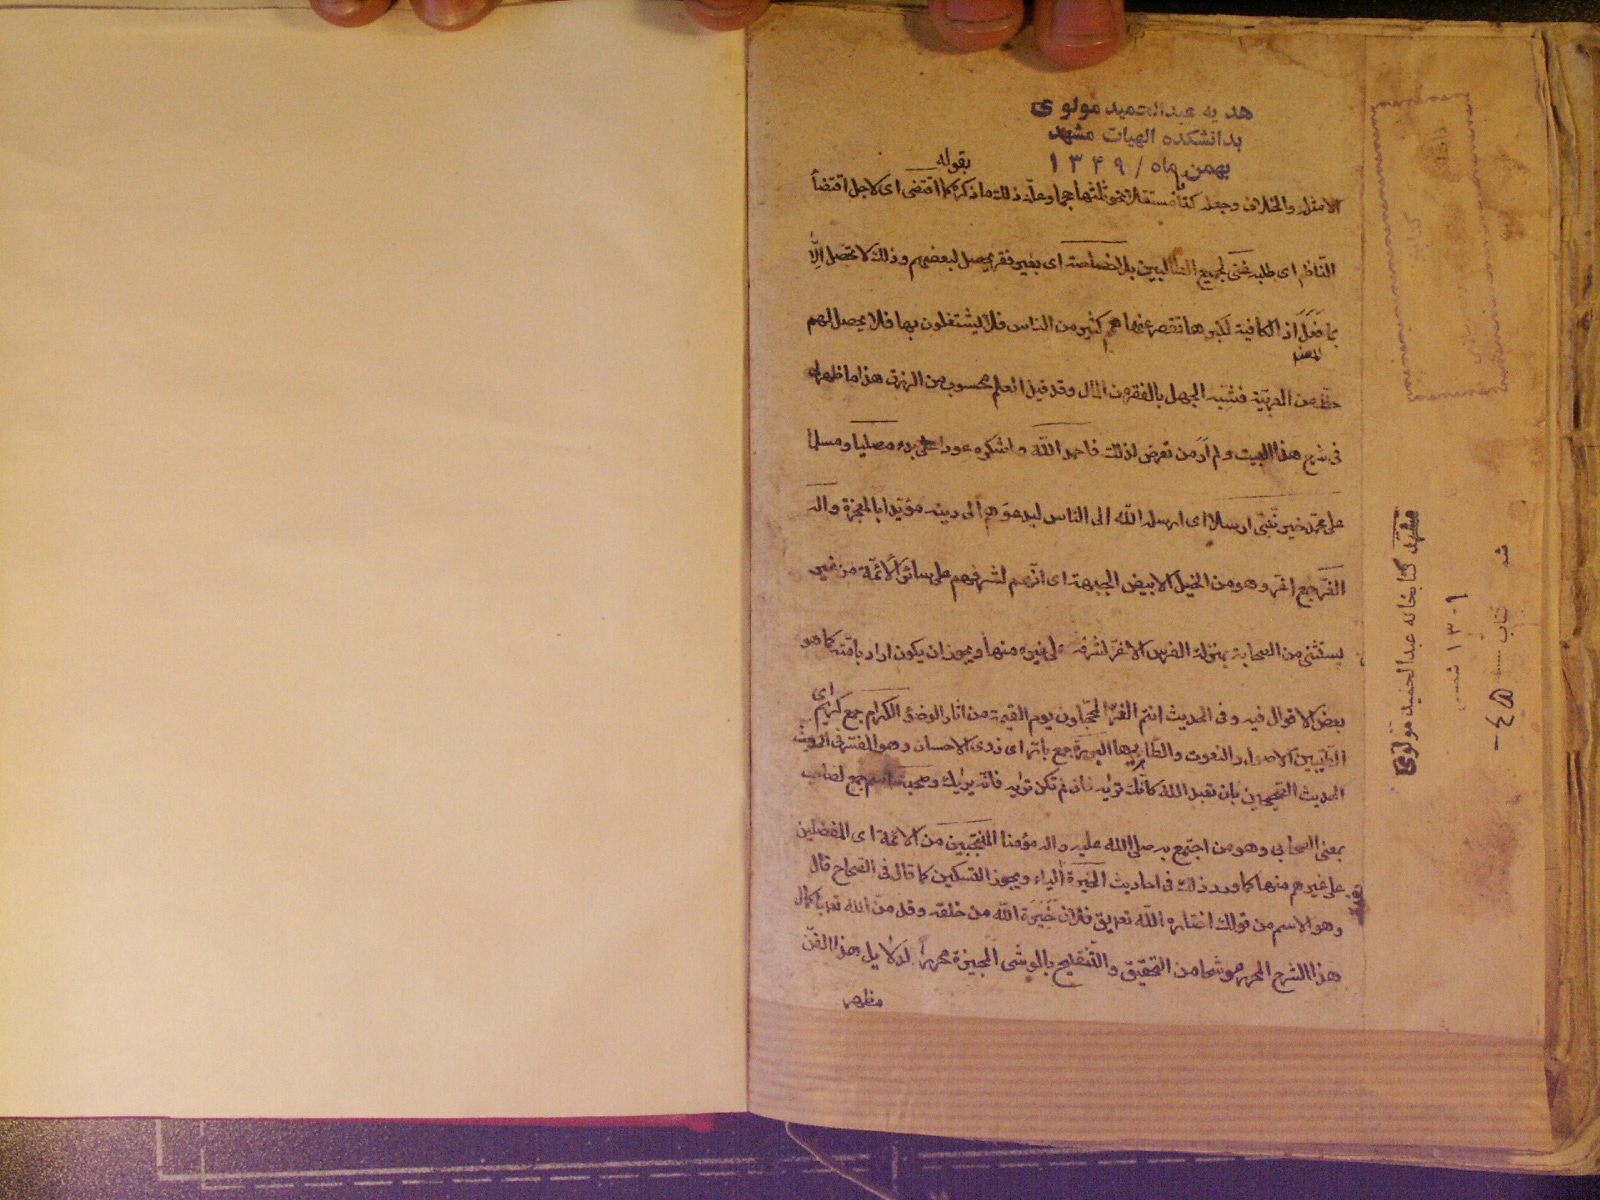 هدیه عبدالحمید مولوی
بدانشکده الهیات مشهد
بهمن ماه / ۱۳۴۹
بقوله
الامثلة والخلاف وجعله كتابا مستقلا حجما وعلة ذلك ما ذكره كما اقتضى اى لاجل اقتضاء
الناظم اى طلبه غنى لجميع الطالبين بلا خصاصة اى بغير فقر يحصل لبعضهم وذلك لا يحصل الا
بما فعل اذ الكافية لكبرها تقصر عنها همم كثير من الناس فلا يشتغلون بها فلا يحصل لهم
حظ من العربية فشبه الجهل بالفقر من المال وقد قيل العلم محسوب من الرزق هذا ما ظهر له
فى شرح هذا البيت ولم ار من تعرض لذلك فاحمد الله واشكره عودا على بدء مصليا ومسلما
على محمد خير نبى ارسلا اى ارسله الله الى الناس ليدعوهم الى دينه مؤيدا بالمعجزة واله
الغر جمع اغر وهو من الخيل الابيض الجبهة اى انهم لشرفهم على سائر الائمة من غير
يستثنى من الصحابة بمنزلة الفرس الاغر لشرفه على غيره منها ويجوز ان يكون اراد بامته كما هو
بعض الاقوال فيه وفى الحديث انتم الغر المحجلون يوم القيمة من اثار الوضؤ الكرام جمع كريم اى
الطيبين الاصول والنعوت والطاهريها البررة جمع بار اى ذوى الاحسان وهو المفسر فى
الحديث الصحيحين بان تعبد الله كانك تراه فان لم تكن تراه فانه يراك وصحبه اسم جمع لصاحب
بمعنى الصحابى وهو من اجتمع به صلى الله عليه واله مؤمنا المنتجبين من الائمة اى المفضلين
على غيرهم منها كما ورد ذلك فى احاديث الخيرة الياء ويجوز التسكين كما قال فى الصحاح قال
وهو الاسم من قولك اختاره الله تع يق فلان خيرة الله من خلقه وقد من الله تع باكمال
هذا الشرح المحرر موشحا من التحقيق والتنقيح بالوشى المجيزة محررا لدلايل هذا الفن
مظهر
مشهد كتابخانه عبدالحمید مولوی
۱۳۰۹